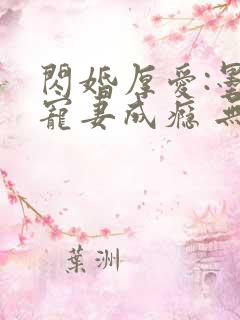 閃婚厚愛:墨
寵妻成癮 無
葉洲